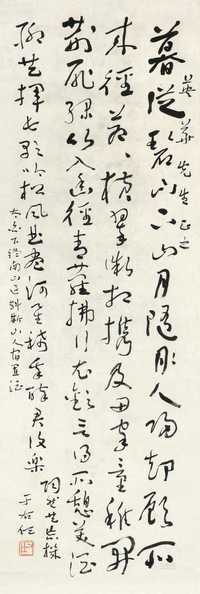 先生正之
暮從碧山下山月隨人歸卻顧所
來徑蒼蒼橫翠微相攜及田家童稚開
荊扉綠竹入幽徑青蘿拂行衣歡言得所憩美酒
聊共揮長歌吟松風曲盡河星稀我醉君復樂
陶然共忘機
太白下終南山過斛斯山人宿置酒
于右任